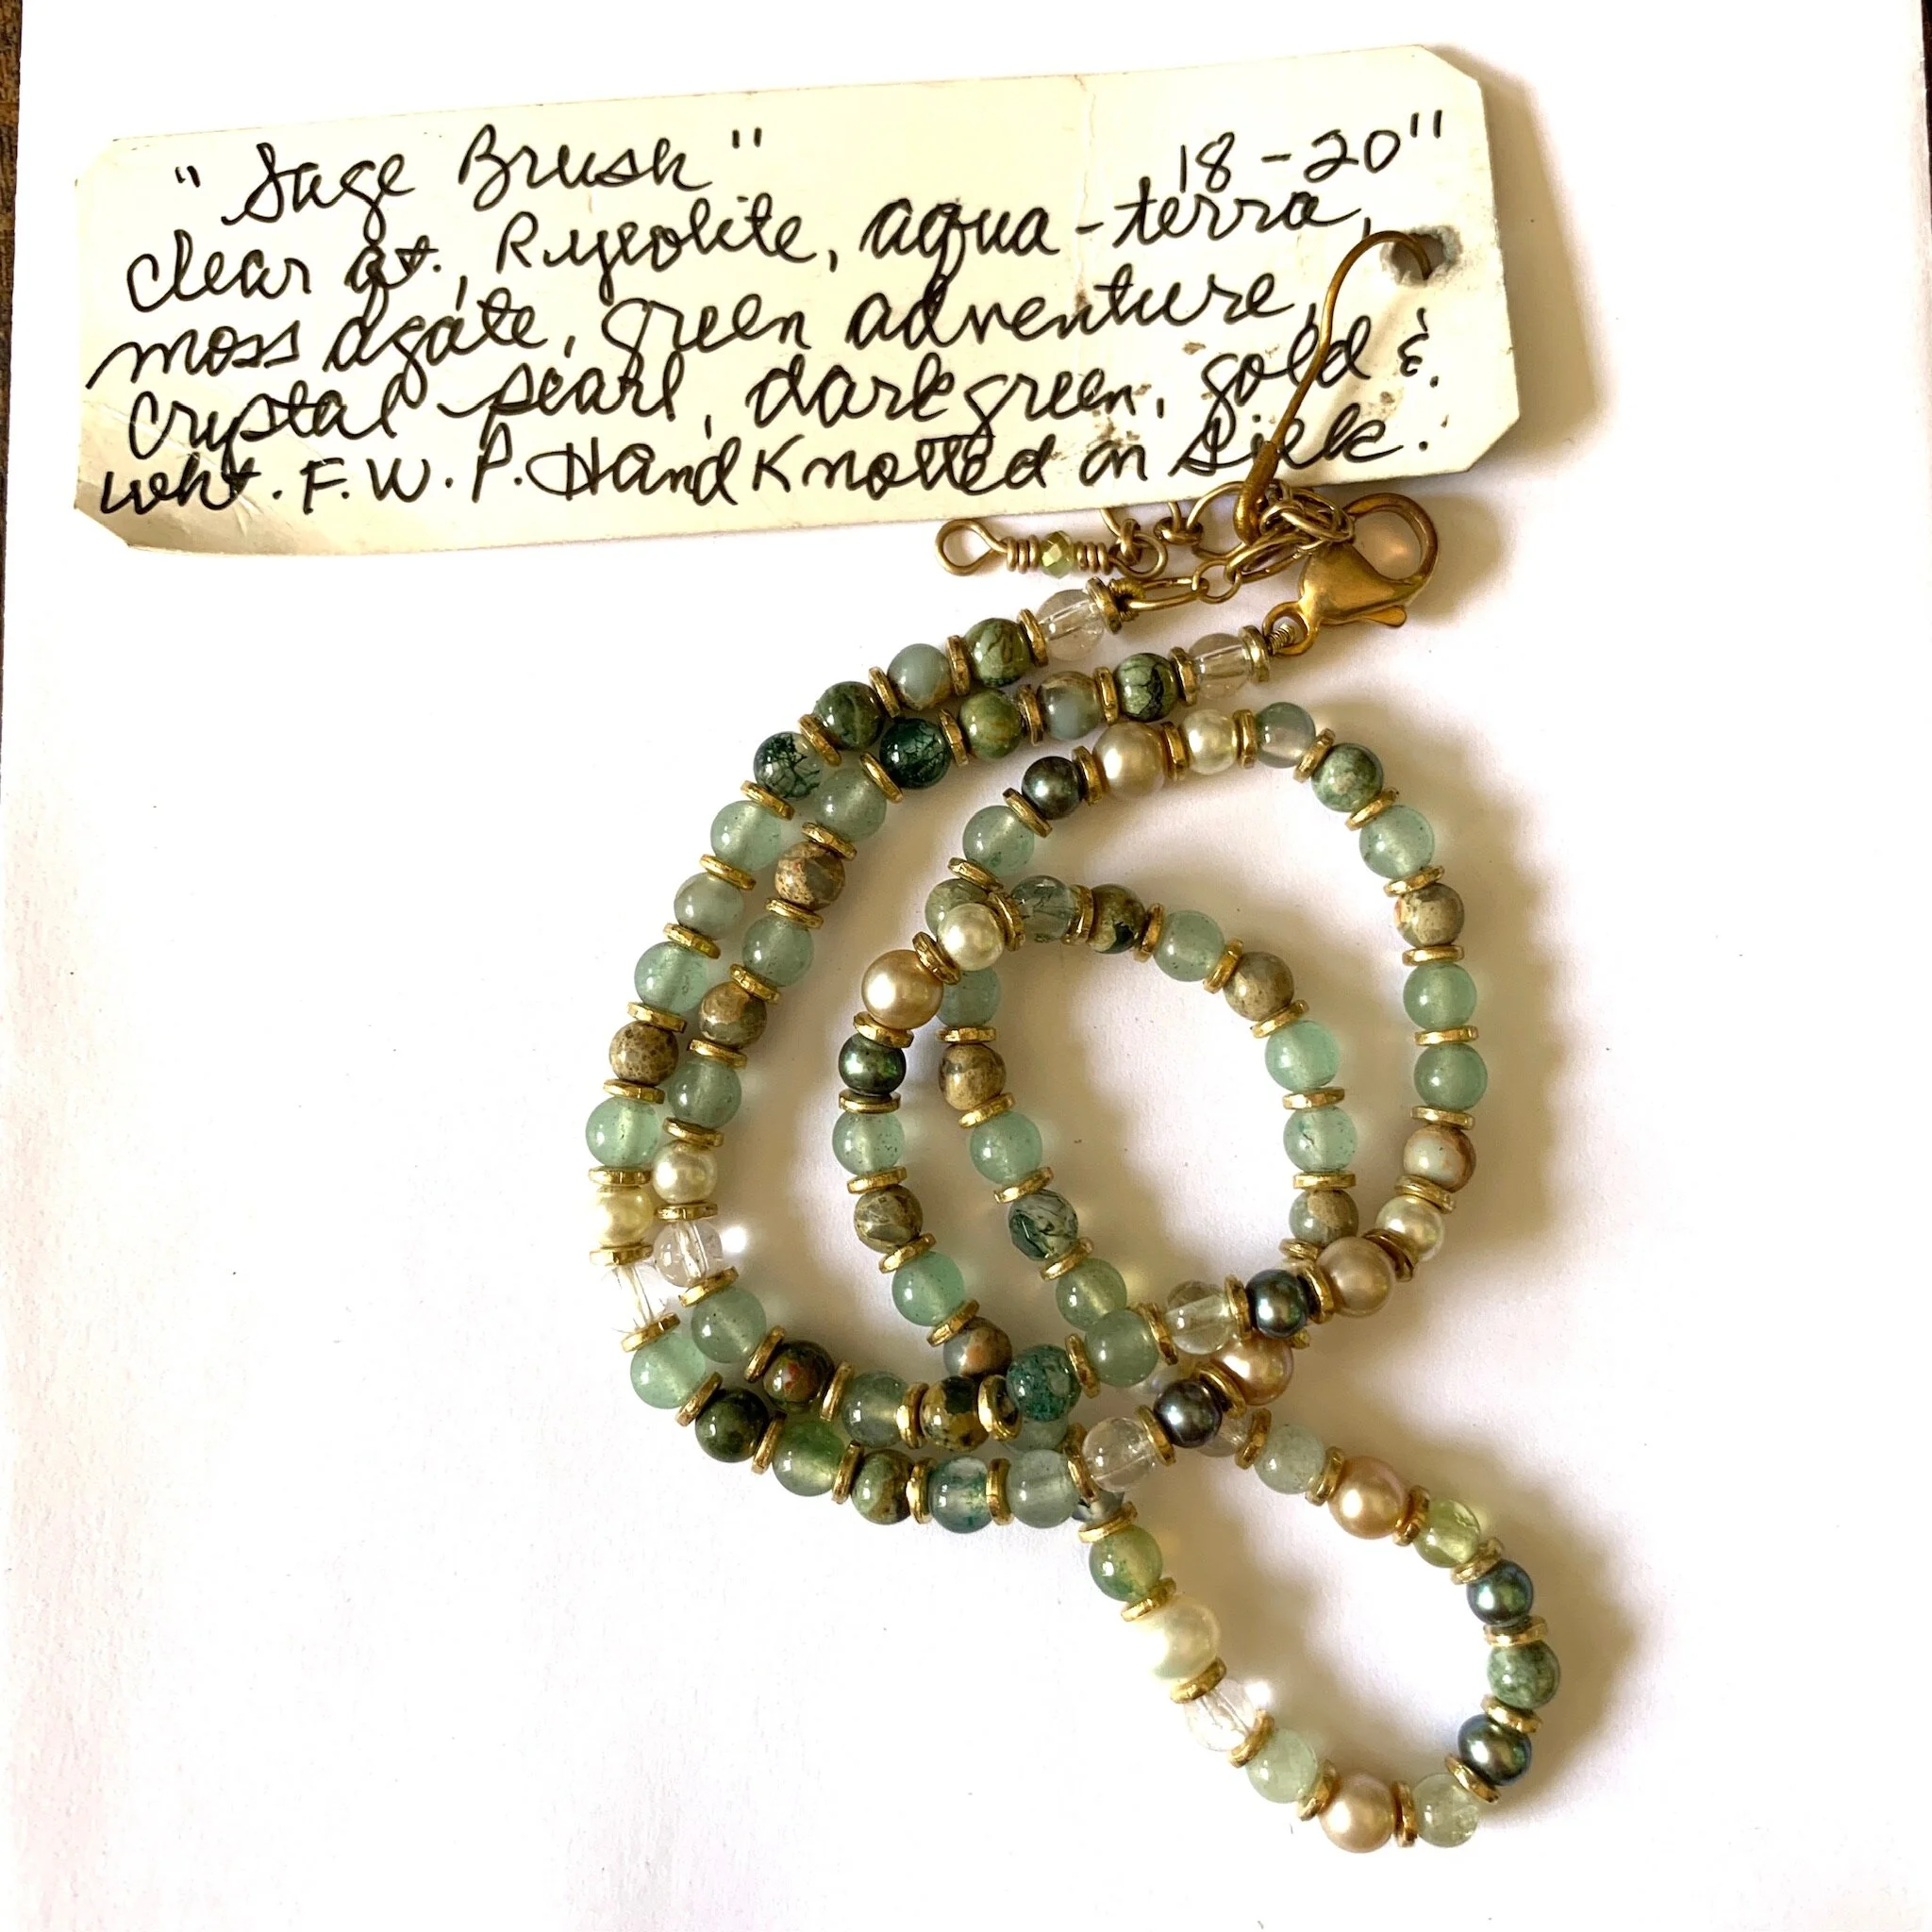 "Sage Brush" 18-20"
clear qt., Ryeolite, aqua-terra,
moss agate, green adventure,
Crystal pearl, dark green, gold &
wht. F.W.P. Hand Knotted on Silk.